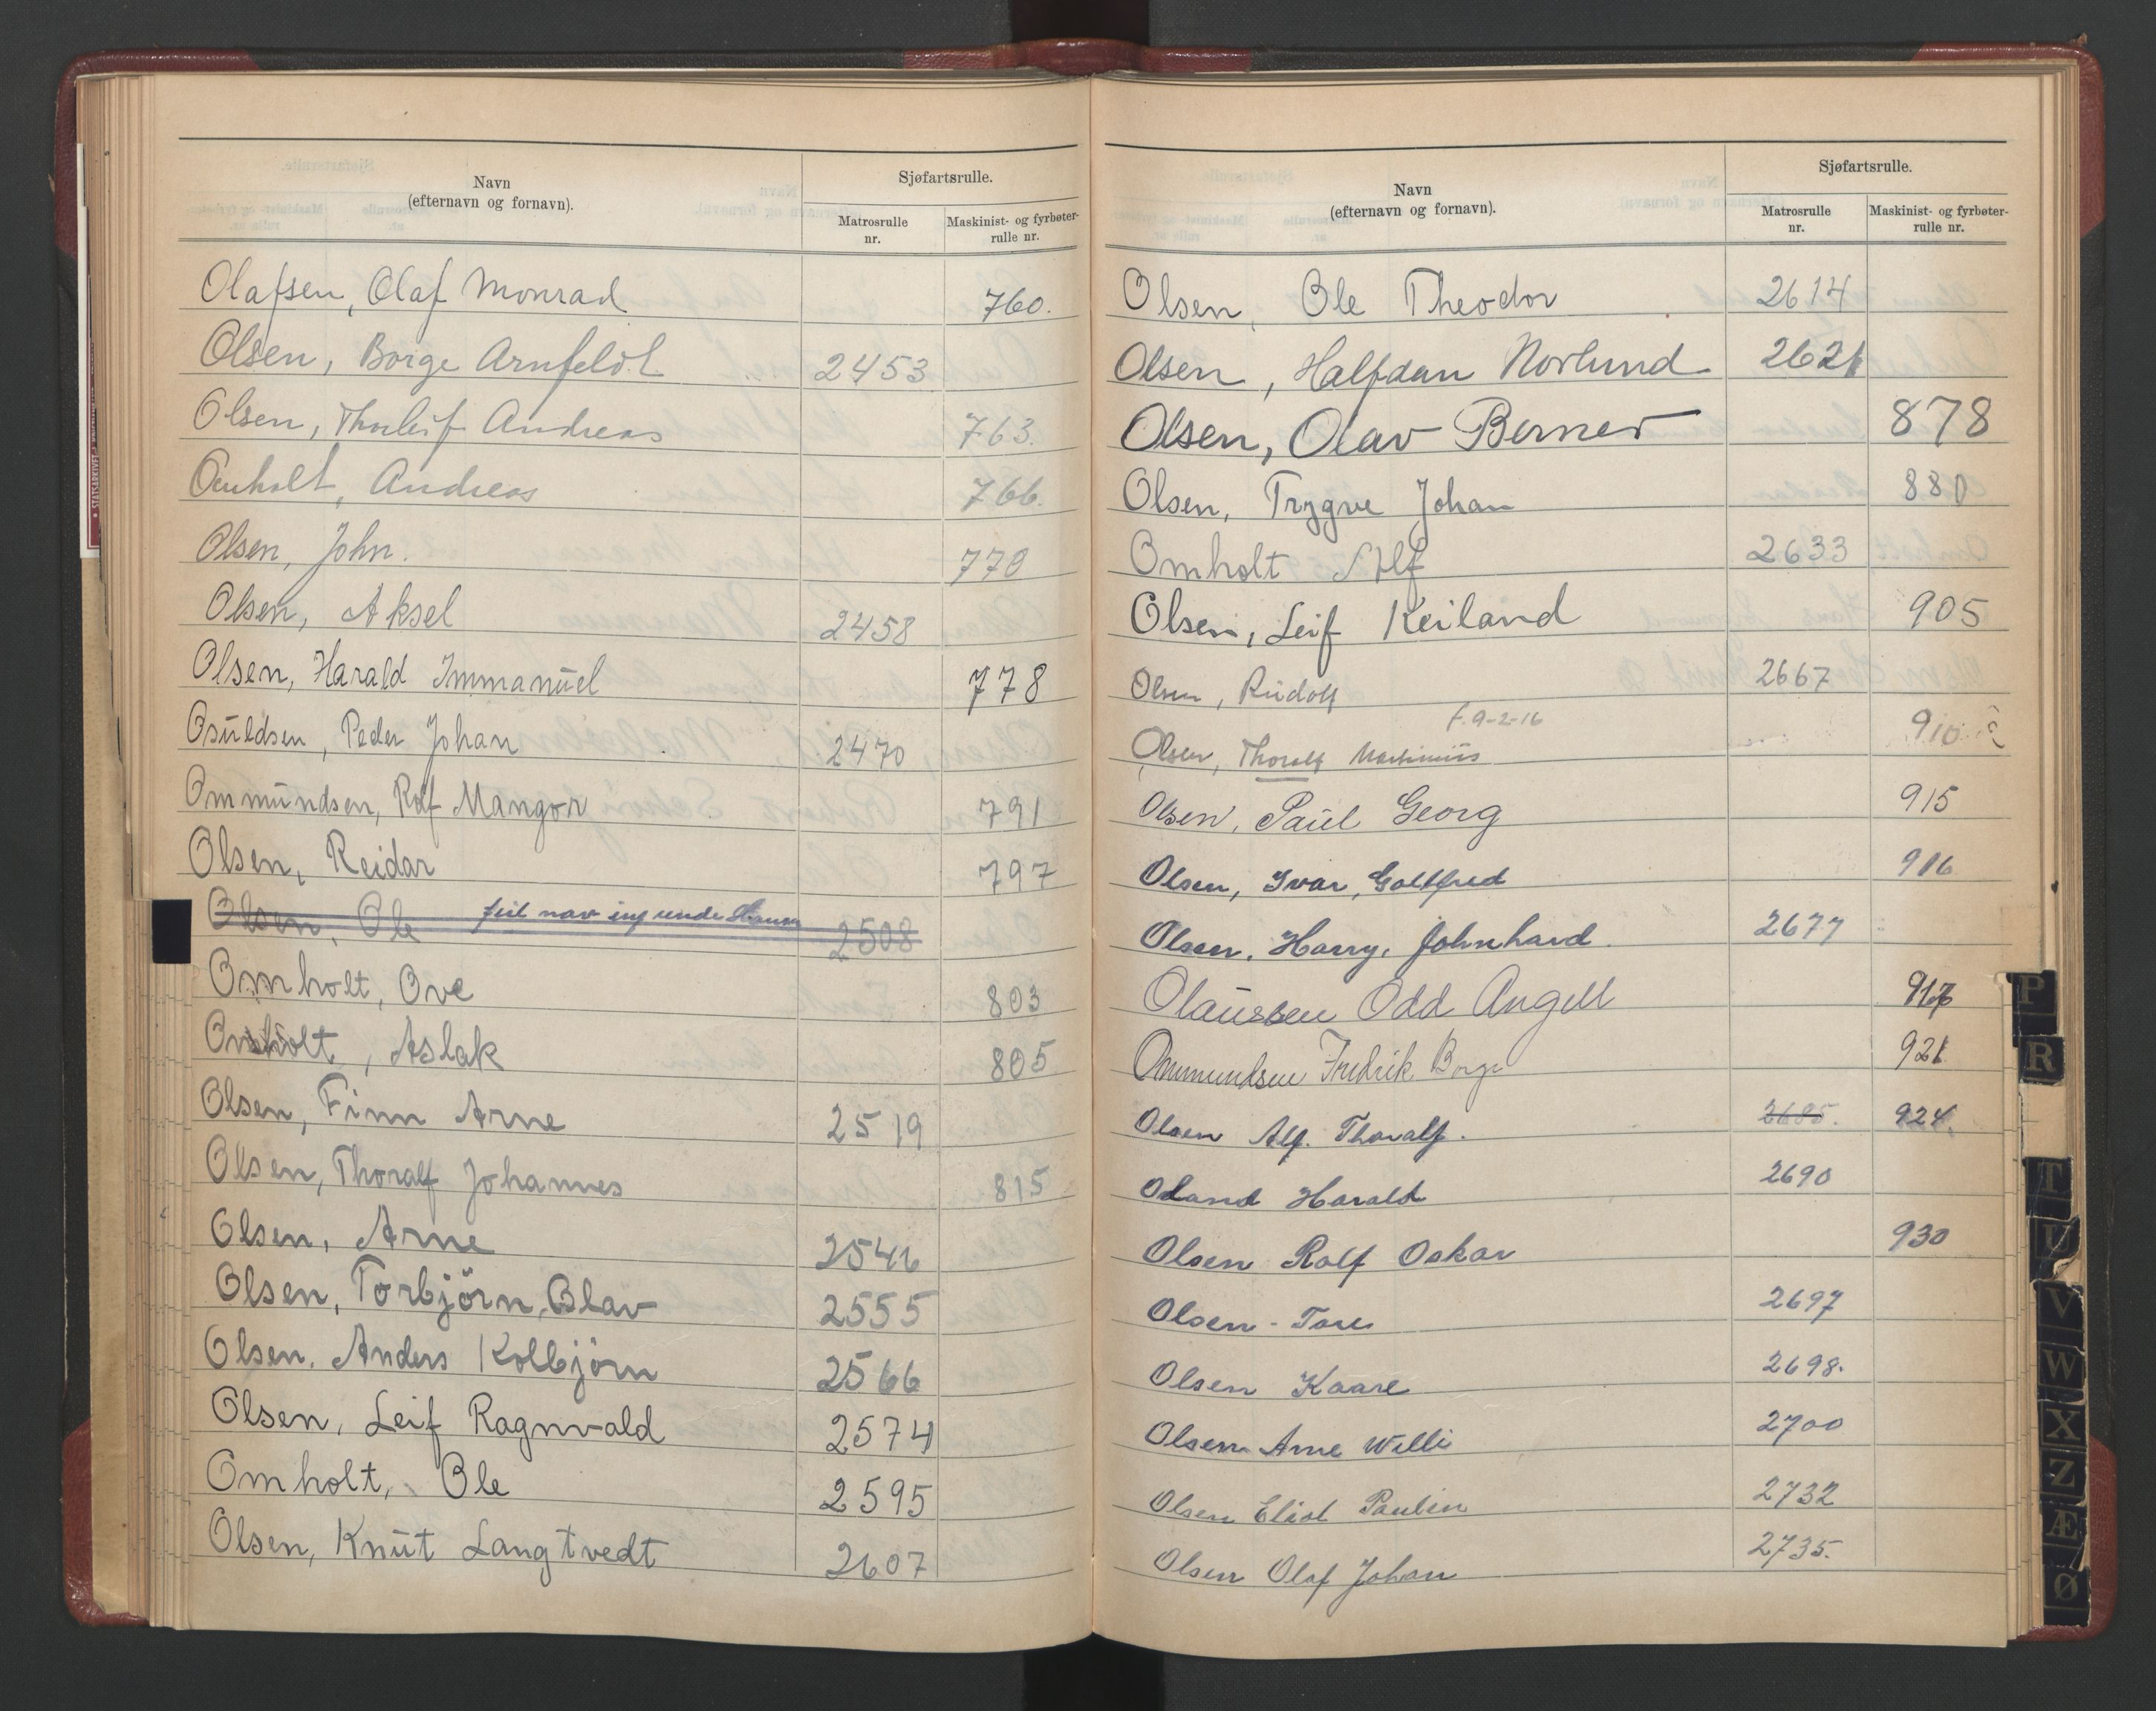 Navn
(efternavn og fornavn).
Sjøfartsrulle.
Matrosrulle nr.
Maskinist- og fyrbøter-rulle nr.
Olafsen, Olaf Monrad 760.
Olsen, Borge Arnfeldt 2453
Olsen, Thorleif Andreas 763.
Omholt, Andreas 766.
Olsen, John. 770
Olsen, Aksel 2458
Olsen, Harald Immanuel 778
Osuldsen, Peder Johan 2470
Ommundsen, Rolf Mangor 791
Olsen, Reidar 797
Olsen, Ole feil nav 2508
Omholt, Ove 803
Omholt, Aslak 805
Olsen, Finn Arne 2519
Olsen, Thoralf Johannes 815
Olsen, Arne 2546
Olsen, Torbjörn Olav 2555
Olsen, Anders Kolbjörn 2566
Olsen, Leif Ragnvald 2574
Omholt, Ole 2595
Olsen, Knut Langtvedt 2607
Navn
(efternavn og fornavn).
Sjøfartsrulle.
Matrosrulle nr.
Maskinist- og fyrbøter-rulle nr.
Olsen, Ole Theodor 2614
Olsen, Halfdan Norlund 2621
Olsen, Olav Berner 878
Olsen, Trygve Johan 880
Omholt Alf 2633
Olsen, Leif Keiland 905
Olsen, Rudolf 2667
f. 9-2-16
Olsen, Thoralf Mathinius 910
Olsen, Paul Georg 915
Olsen, Ivar, Gottfred 916
Olsen, Harry, Johnhard. 2677
Olaussen Odd Angell 917
Ommundsen Fredrik Borge 921
Olsen Alf. Thoralf. 2685. 924.
Oland Harald 2690
Olsen Rolf Oskar 930
Olsen - Tore 2697
Olsen Kaare 2698.
Olsen Arne Willi 2700
Olsen Eliot Paulin 2732
Olsen Olaf Johan 2735.
P
R
T
U
V
W
X
Z
Æ
Ø